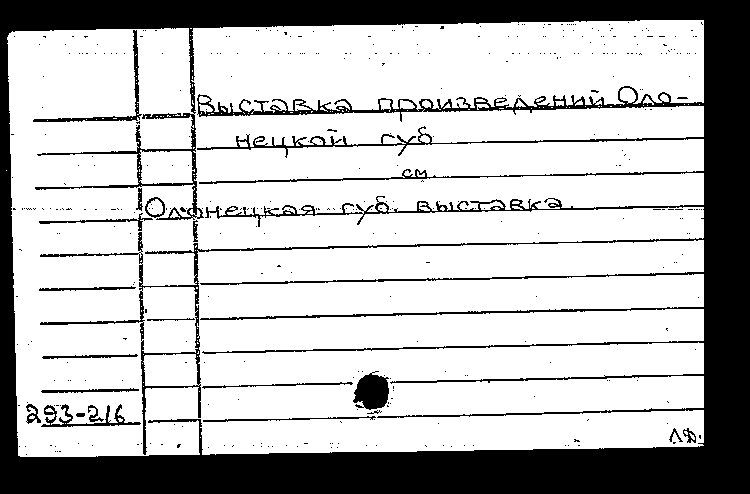 Выставка произведений Оло-
нецкой губ
см.
Олонецкая губ. выставка.
293-216
ЛФ.